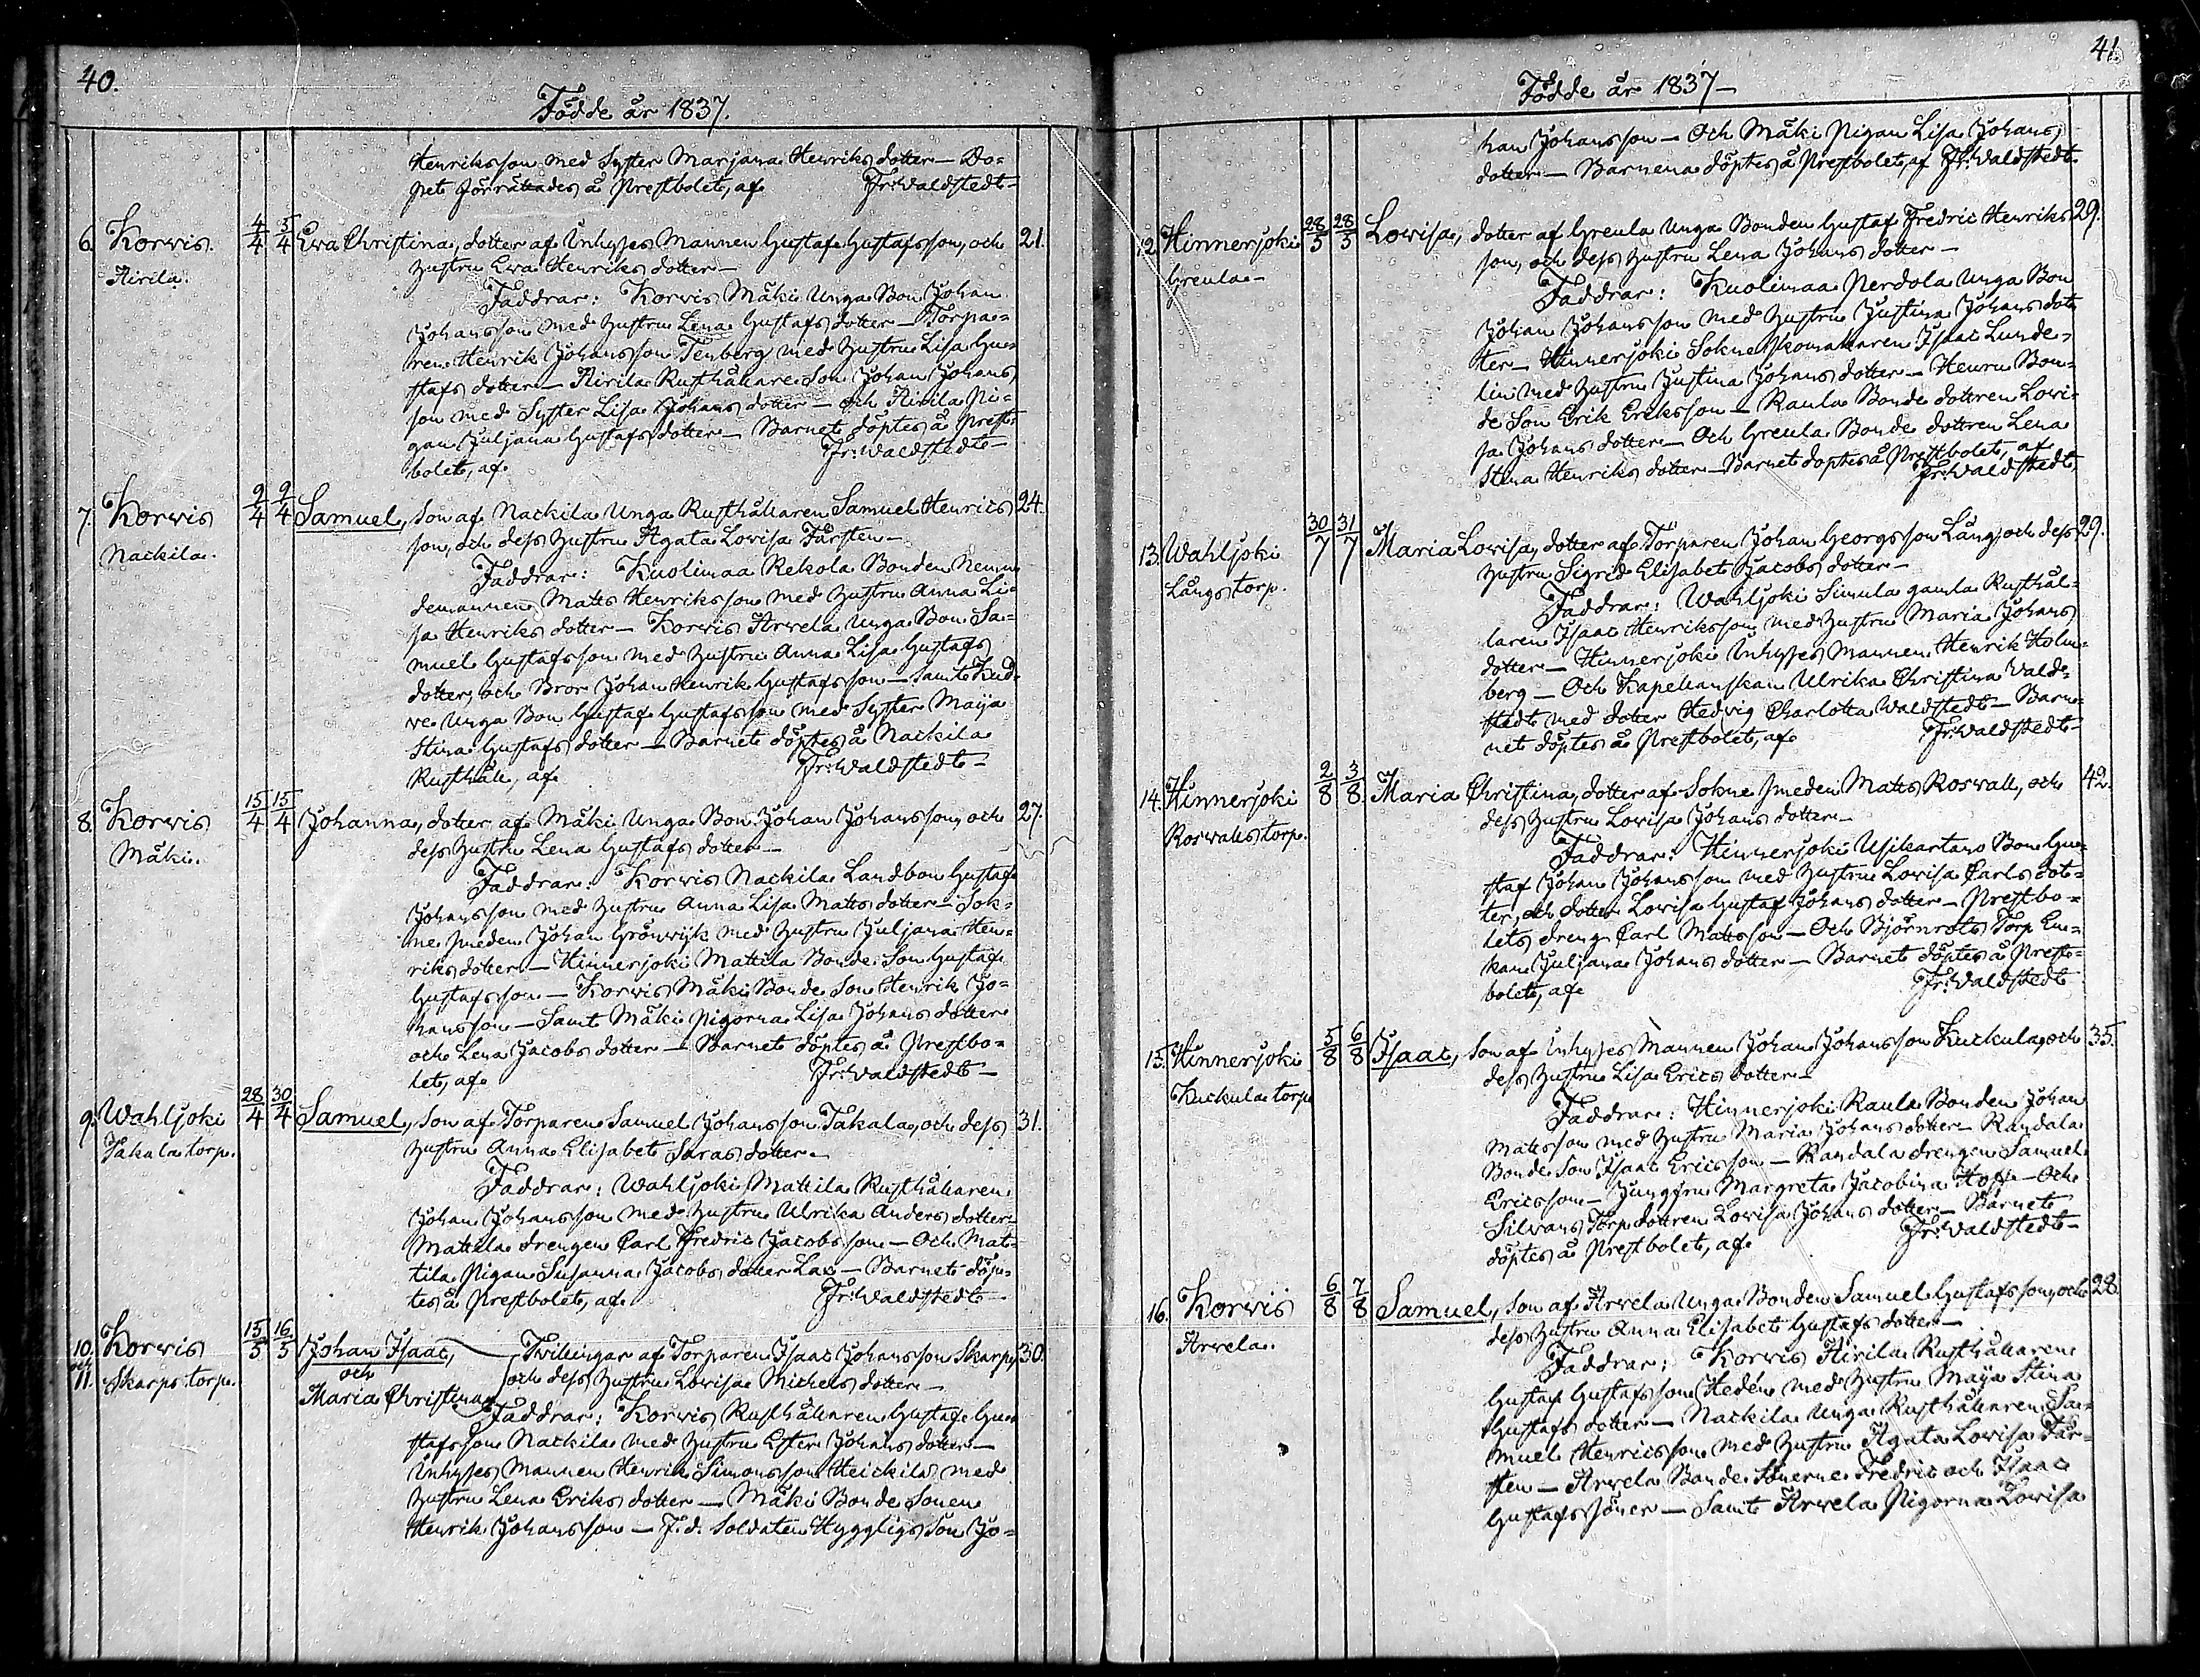 40.
Födde år 1837.
Henriksson med Syster Marjana Henriks dotter — Do=
pet förrättades å Prestbolet, af Fr: Waldstedt —
6. Korvis. 4/4 5/4 Eva Christina, dotter af Inhyses Mannen Gustaf Gustafsson, och 21.
Airila. hustru Eva Henriks dotter —
Faddrar: Korvis Mäki Unga Bon Johan
Johansson med hustru Lena Gustafs dotter — Torpa=
ren Henrik Johansson Tenberg med hustru Lisa Gu=
stafs dotter — Airila Rusthållare Son Johan Johans
son med Syster Lisa Johans dotter — och Airila Pi=
gan Juljana Gustafs dotter — Barnet döptes å Prest=
bolet, af Fr: Waldstedt —
7. Korvis 9/4 9/4 Samuel, Son af Nackila Unga Rusthållaren Samuel Henrics 24.
Nackila. son, och dess hustru Agata Lovisa Färsten —
Faddrar: Kuolimaa Rekola Bonden Nemn
demannen Matts Henriksson med hustru Anna Li=
sa Henriks dotter — Korvis Arvela Unga Bon Sa=
muel Gustafsson med hustru Anna Lisa Gustafs
dotter, och Bror Johan Henrik Gustafsson — samt
Unga Bon Gustaf Gustafsson med Syster Maija
Stina Gustafs dotter — Barnet döptes å Nackila
Rusthåll, af Fr: Waldstedt —
8. Korvis 15/4 15/4 Johanna, dotter af Mäki Unga Bon Johan Johansson, och 27.
Mäki. dess hustru Lena Gustafs dotter —
Faddrar: Korvis Nackila Landbon Gustaf
Johansson med hustru Anna Lisa Matts dotter — Sok=
ne Smeden Johan Grönwijk med hustru Juljana Hen=
riks dotter — Hinnerjoki Mattila Bonde Son Gustaf
Gustafsson — Korvis Mäki Bonde Son Henrik Jo=
hansson — Samt Mäki Pigorna Lisa Johans dotter
och Lena Jacobs dotter — Barnet döptes å Prestbo=
let, af Fr: Waldstedt —
9. Wahljoki 28/4 30/4 Samuel, Son af Torparen Samuel Johansson Takala, och dess 31.
Takala torp. hustru Anna Elisabet Saras dotter —
Faddrar: Wahljoki Mattila Rusthållaren
Johan Johansson med hustru Ulrika Anders dotter
Mattila drengen Carl Fredric Jacobsson — Och Mat=
tila Pigan Susanna Jacobs dotter Lax — Barnet döp=
tes å Prestbolet, af Fr: Waldstedt —
10. Korvis 15/5 16/5 Johan Isaac, Tvillingar af Torparen Isaac Johansson Skarp, 30.
och
11. Skarps torp. och och dess hustru Lovisa Michels dotter —
Maria Christina Faddrar: Korvis Rusthållaren Gustaf Gu=
stafsson Nackila med hustru Ester Johans dotter —
Inhyses Mannen Henrik Simonsson Heickilä med
hustru Lena Eriks dotter — Mäki Bonde Sonen
Henrik Johansson — F.d. Soldaten Hyggligs Son Jo=
41.
Födde år 1837 —
han Johansson — Och Mäki Pigan Lisa Johans
dotter — Barnena döptes å Prestbolet, af Fr: Waldstedt
12. Hinnerjoki 28/5 28/5 Lovisa, dotter af Greula Unga Bonden Gustaf Fredric Henriks 29.
Greula — son, och dess hustru Lena Johans dotter —
Faddrar: Kuolimaa Perdola Unga Bon
Johan Johansson med hustru Justina Johans dot
ter — Hinnerjoki Sokneskomakaren Isaac Lunde=
lin med hustru Justina Johans dotter — Bon=
de Son Erik Eriksson — Raula Bonde dottren Lovi=
sa Johans dotter — Och Greula Bonde dottren Lena
Stina Henriks dotter — Barnet döptes å Prestbolet, af
Fr: Waldstedt
13. Wahljoki 30/7 31/7 Maria Lovisa, dotter af Torparen Johan Georgsson Lång, och dess 29.
Långs torp. hustru Sigrid Elisabet Jacobs dotter —
Faddrar: Wahljoki Simula gamla Rusthål=
laren Isaac Henriksson med hustru Maria Johans
dotter — Hinnerjoki Inhyses Mannen Henrik Holm=
berg — Och Kapellanskan Ulrika Christina Wald=
stedt med dotter Hedvig Charlotta Waldstedt — Bar=
net döptes å Prestbolet, af Fr: Waldstedt —
14. Hinnerjoki 2/8 3/8 Maria Christina, dotter af Sokne Smeden Matts Roswall, och 42.
Roswalls torp. dess hustru Lovisa Johans dotter —
Faddrar: Hinnerjoki Usikartano Bon Gu=
staf Johan Johansson med hustru Lovisa Carls dot=
ter, och dotter Lovisa Gustaf Johans dotter — Prestbo=
lets dreng Carl Mattsson — Och Björnrots Torp En=
kan Juljana Johans dotter — Barnet döptes å Prest=
bolet, af Fr: Waldstedt
15. Hinnerjoki 5/8 6/8 Isaac, Son af Inhyses Mannen Johan Johansson Kuckula, och 35.
Kuckula torp dess hustru Lisa Erics dotter —
Faddrar: Hinnerjoki Raula Bonden Johan
Mattsson med hustru Maria Johans dotter — Randala
Bonde Son Isaac Ericsson — Randala drengen Samuel
Ericsson — Jungfru Margreta Jacobina Hoff — Och
Silvans Torpdottren Lovisa Johans dotter — Barnet
döptes å Prestbolet, af Fr: Waldstedt —
16. Korvis 6/8 7/8 Samuel, Son af Arvela Unga Bonden Samuel Gustafsson, och 28.
Arvela. dess hustru Anna Elisabet Gustafs dotter —
Faddrar: Korvis Airila Rusthållaren
Gustaf Gustafsson Hedén med hustru Maija Stina
Gustafs dotter — Nackila Unga Rusthållaren Sa=
muel Henricsson med hustru Agata Lovisa Fär=
sten — Arvela Bonde Sönerne Fredric och Isaac
Gustafs söner — Samt Arvela Pigorna Lovisa